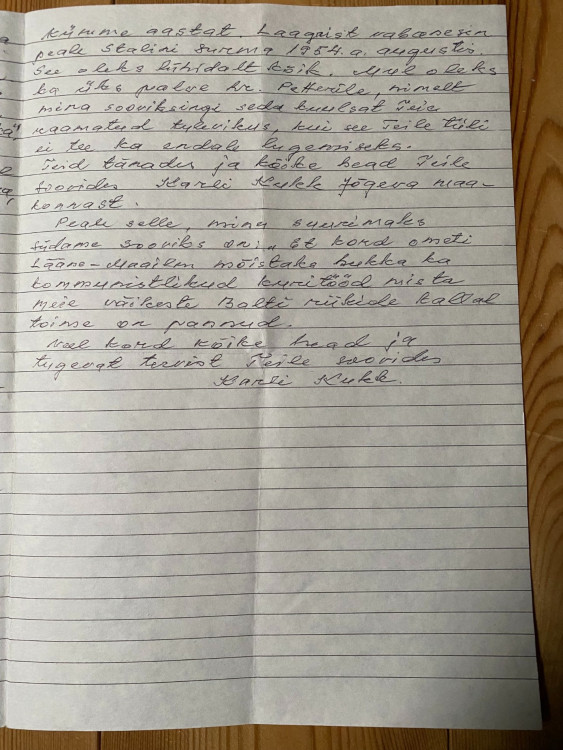 kümme aastat. Laagrist vabanesin
peale Stalini surma 1954.a. augustis.
See oleks lühidalt kõik. Mul oleks
ka üks palve hr. Petterile, nimelt
mina sooviksingi seda kuulsat Teie
raamatud tulevikus, kui see Teile tüli
ei tee ka endale lugemiseks.
Teid tänades ja kõike head Teile
soovides Harli Kukk Jõgeva maa-
konnast.
Peale selle, minu suurimaks
südame sooviks on, et kord ometi
Lääne-Maailm mõistaks hukka ka
kommunistlikud kuritööd mista
meie väikeste Balti riikide kallal
toime on pannud.
Veel kord kõike head ja
tugevat tervist Teile soovides
Harli Kukk.